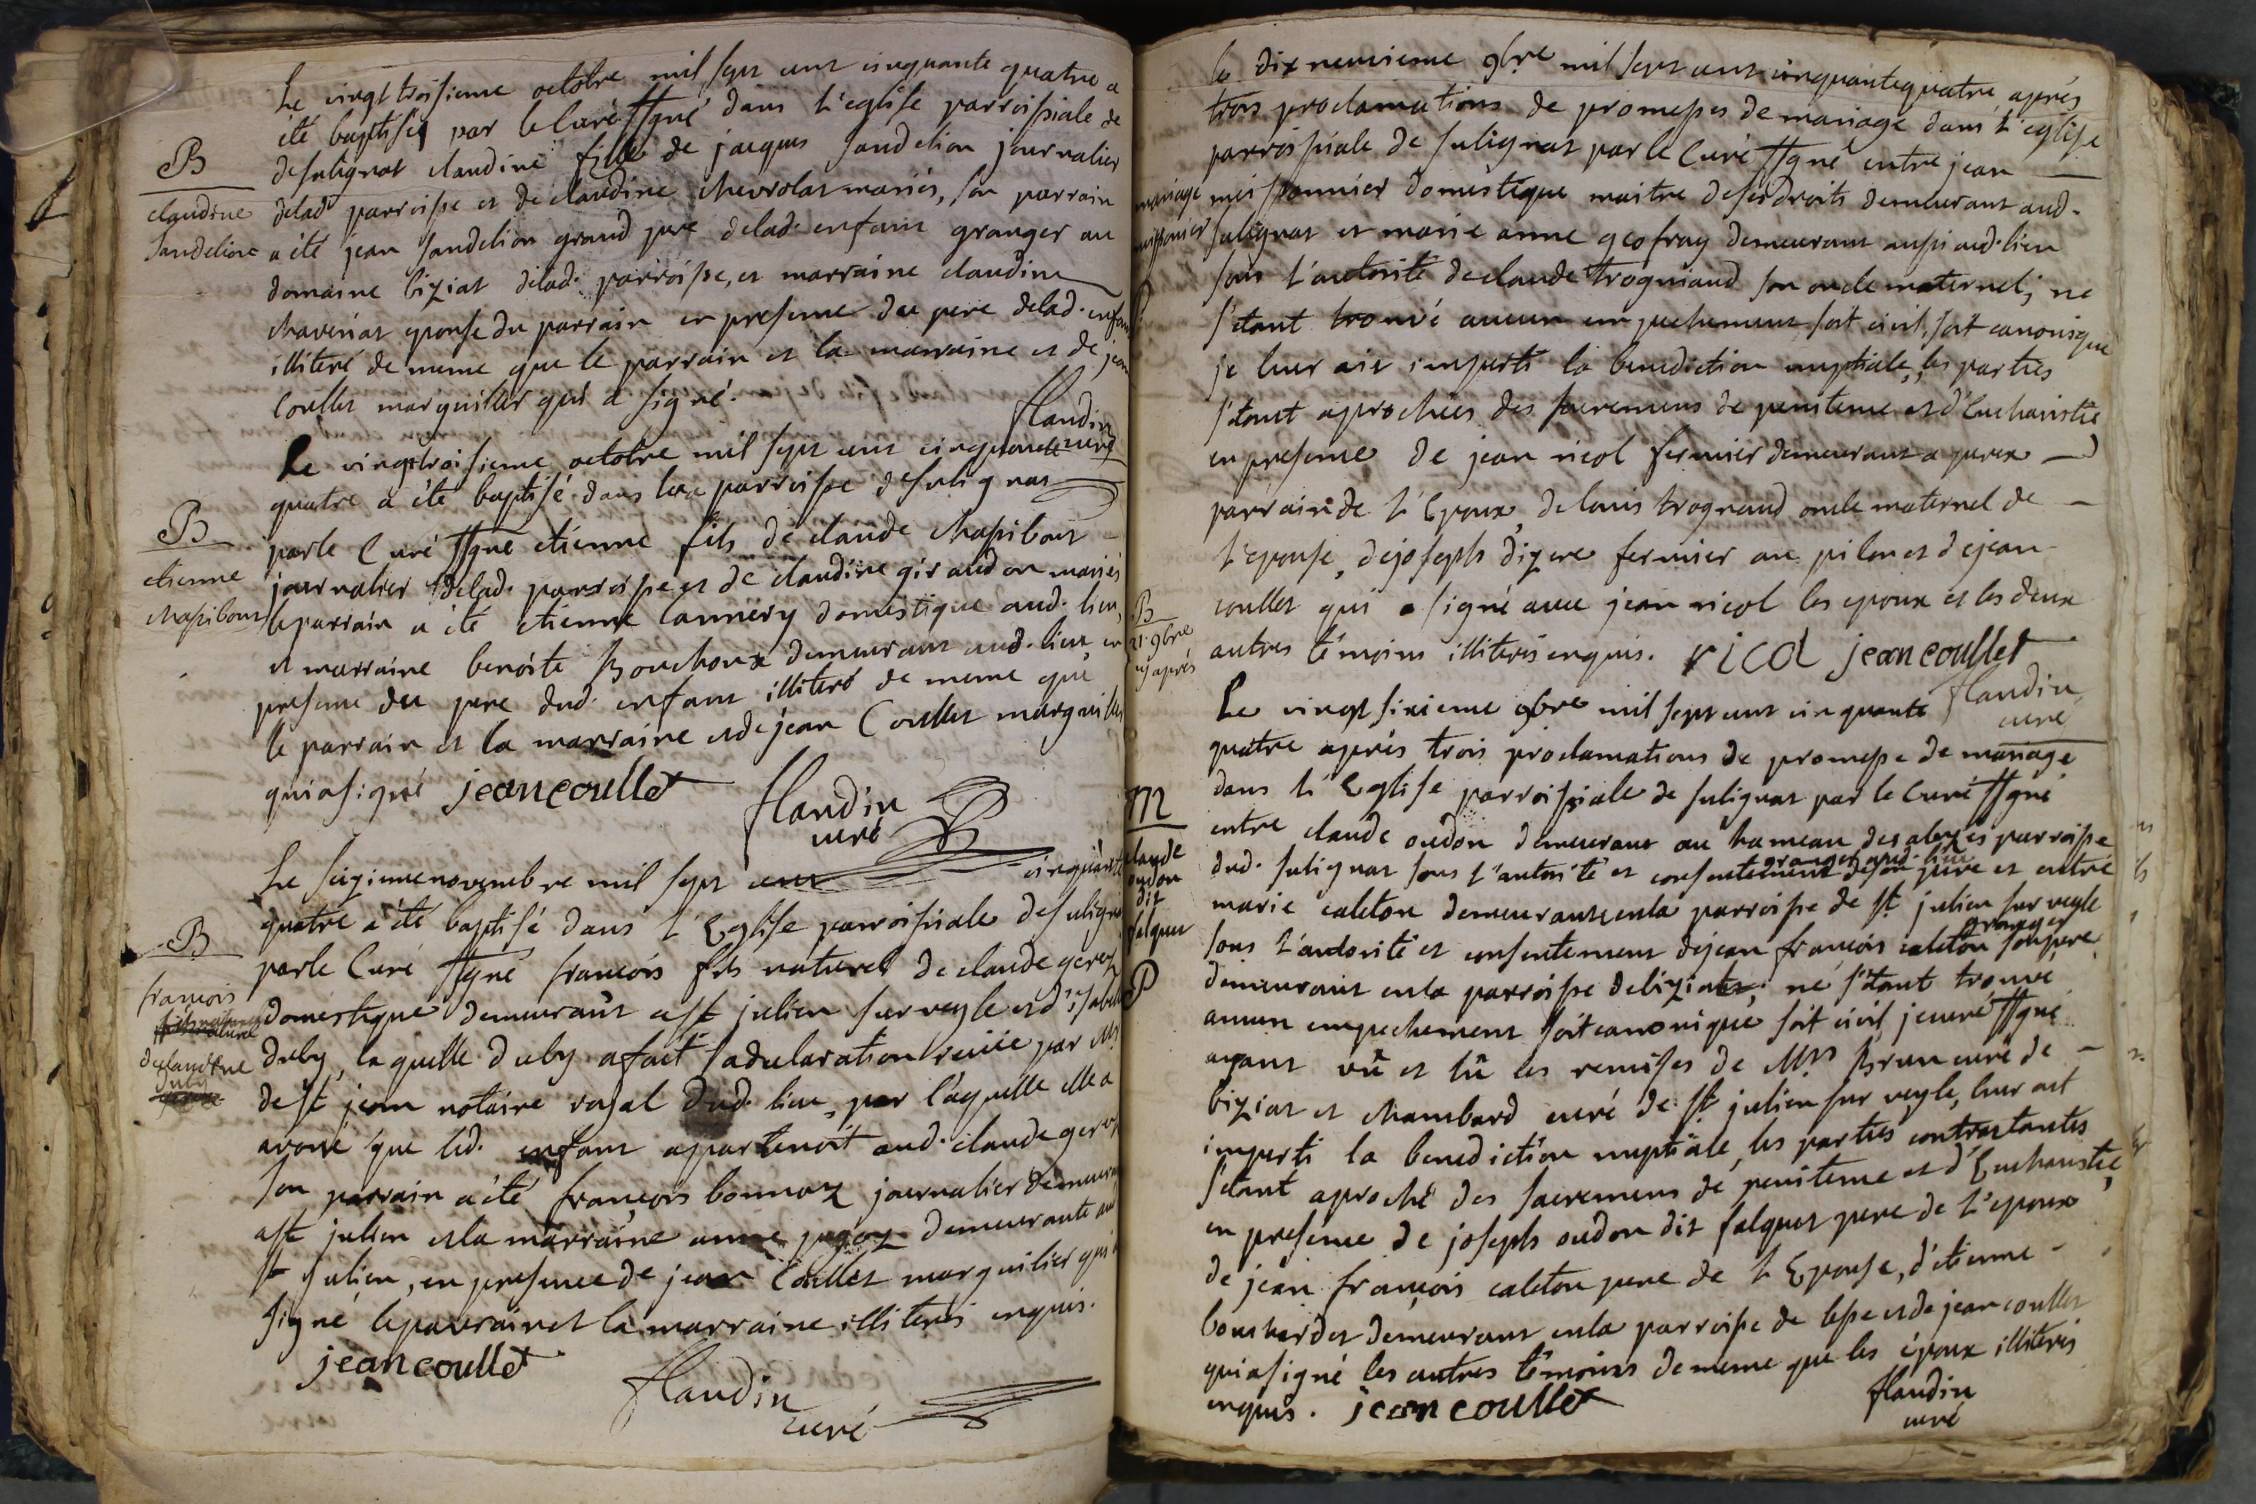 Le vingt troisieme octobre mil sept cent cinquante quatre a
été baptisé par le Curé ssgné dans l'eglise parroissiale de
de sulignat claudine fille de jacques sandelion journalier
B
claudine
sandelion
delad parroisse et de claudine chevrolat mariés, son parrain
a été jean sandelion grand pere delad. enfant granger au
domaine biziat delad. parroisse, et marraine claudine
chavenat epouse du parrain en presence du pere delad. enfant
illiteré de meme que le parrain et la marraine et de jean
Coullet marguillier qui a signé.
flandin
curé
Le vingt troisieme octobre mil sept cent cinquante
quatre a été baptisé dans la parroisse de sulignat
B
etienne
chassibout
par le Curé ssgné etienne fils de claude chassibout
journalier delad. parroisse et de claudine giraudon mariés
le parrain a été etienne Lannery domestique aud. lieu,
et marraine benoite Bouchoux demeurant aud. lieu en
presence du pere dud. enfant illiteré de meme que
le parrain et la marraine et de jean Coullet marguillier
qui a signé jean coullet
flandin
curé
Le seizieme novembre mil sept cent cinquante
quatre a été baptisé dans l'Eglise parroissiale de sulignat
B
francois
declaudine
duby
par le Curé ssgné francois fils naturel de claude gerox
domestique demeurant a st julien sur veyle et d'isabelle
duby, laquelle duby a fait sa declaration reciie par Mr
de st jean notaire royal dud. lieu, par laquelle elle a
avoué que led. enfant appartenoit aud. claude gerox
son parrain a été francois bonnaz journalier demeurant
a st julien et la marraine anne demeurante aud
st julien, en presence de jean Coullet marguilier qui a
signé le parrain et la marraine illiterés enquis.
jean coullet
flandin
curé
le dix neuvieme 9bre mil sept cent cinquantequatre après
trois proclamations de promesses de mariage dans l'eglise
parroissiale de sulignat par le Curé ssgné entre jean
mariage
missonnier
missonnier domestique maitre de ses droits demeurant aud.
sulignat et marie anne geofray demeurant aussi aud. lieu
sous l'autorité de claude trogniaud son oncle maternel; ne
s'étant trouvé aucun empechement soit civil, soit canonique
je leur ait imparti la benediction nuptiale, les parties
s'étant aprochées des sacremens de penitence et d'Eucharistie
en presence de jean ricol fermier demeurant a perex
parrain de l'Epoux, de louis trognaud oncle maternel de
l'epouse, de joseph dizere fermier au pilon et de jean
B
21. 9bre
cy après
coullet qui a signé avec jean ricol les epoux et les deux
autres témoins illiterés enquis. ricol jean coullet
flandin
curé
Le vingt sixieme 9bre mil sept cent cinquante
quatre après trois proclamations de promesse de mariage
M
claude
oudon
dit
falquet
P
dans l'Eglise parroissiale de sulignat par le Curé ssgné
entre claude oudon demeurant au hameau des parroisse
granger aud. lieu
dud. sulignat sous l'autorité et consentement de son pere et entre
marie caleton demeurante en la parroisse de st julien sur veyle
granger
sous l'autorité et consentement de jean francois caleton son pere
demeurant en la parroisse de biziat; ne s'étant trouvé
aucun empechement soit canonique soit civil, je curé ssgné
ayant vû et lû les remises de Mrs Brun curé de
biziat et chambard curé de st julien sur veyle, leur ait
imparti la benediction nuptiale, les parties contractantes
s'étant aproché des sacremens de penitence et d'Eucharistie,
en presence de joseph oudon dit falquet pere de l'epoux
de jean francois caleton pere de l'Epouse, d'etienne
bouchardet demeurant en la parroisse de et de jean coullet
qui a signé les autres témoins de meme que les époux illiterés
enquis. jean coullet
flandin
curé